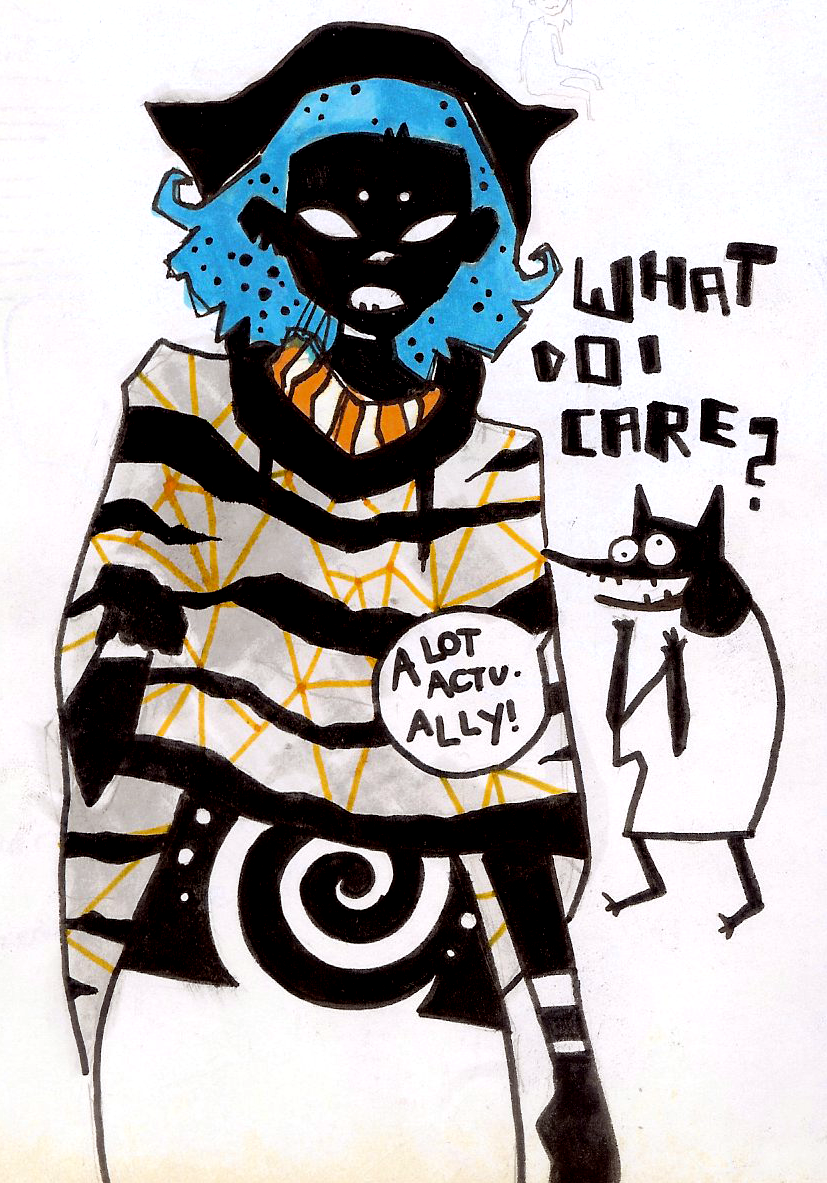 WHAT
DO I
CARE?
A LOT
ACTU-
ALLY!